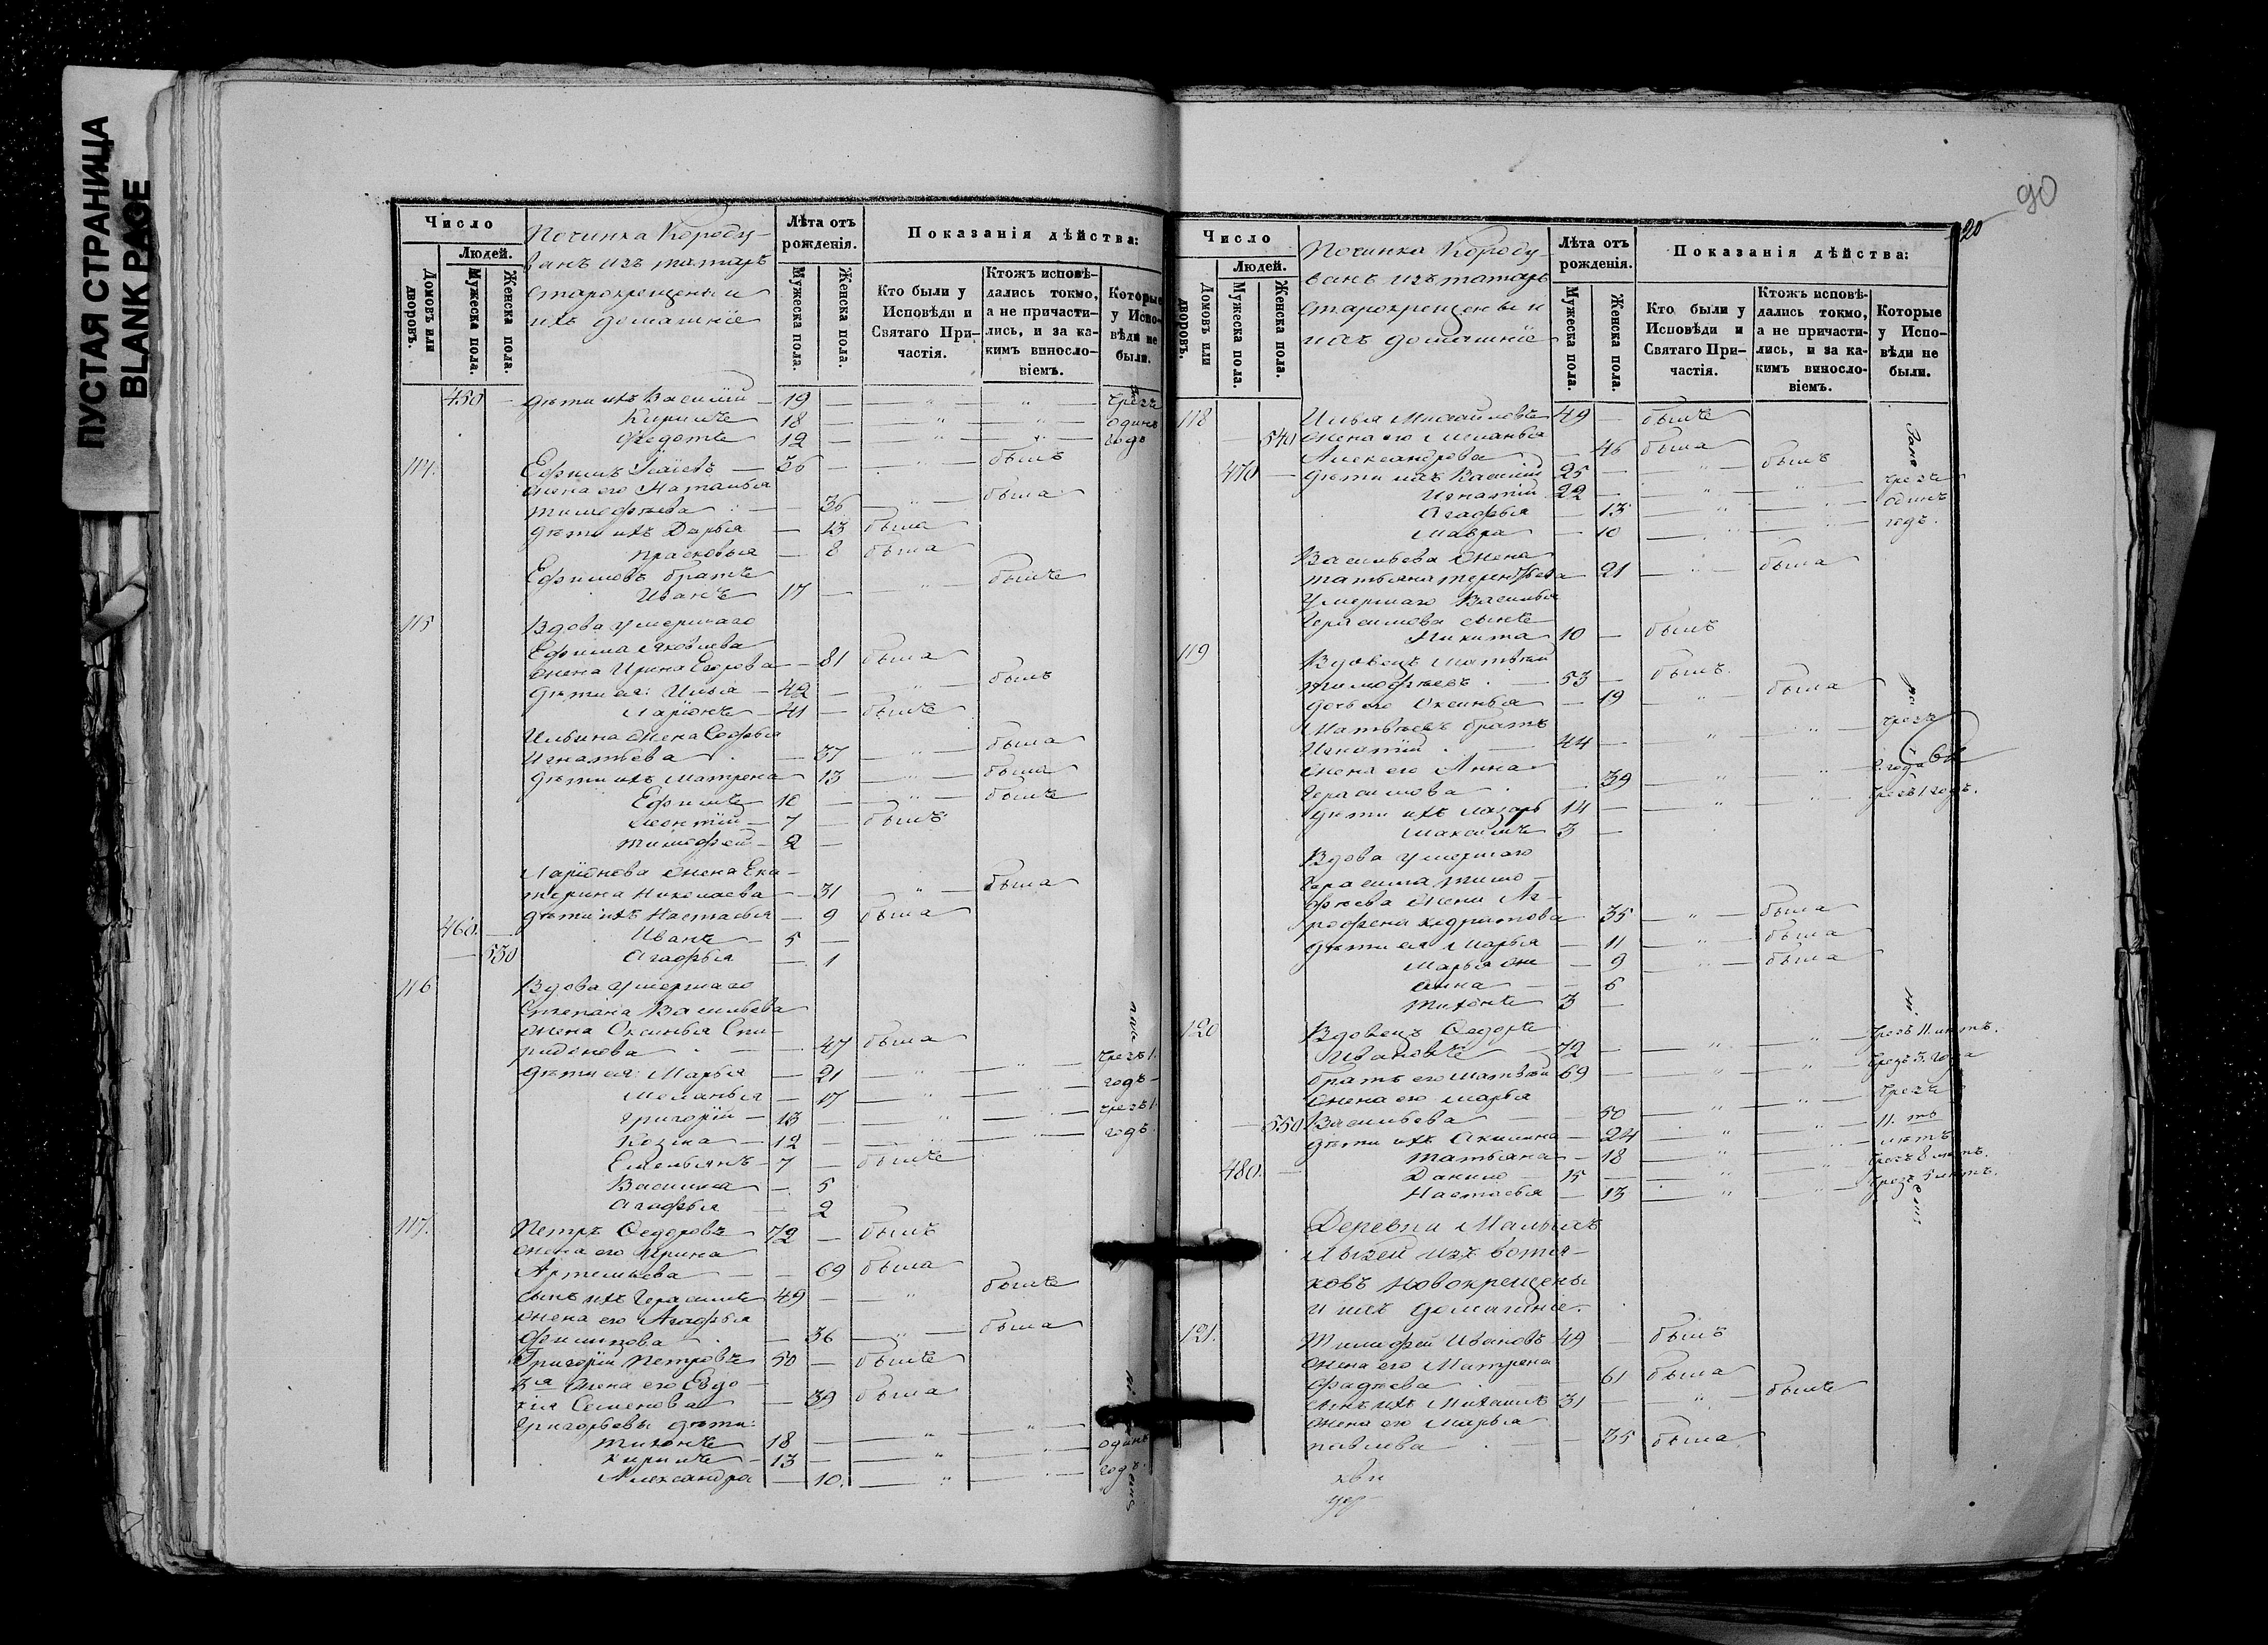 ПУСТАЯ СТРАНИЦА
BLANK PAGE
Число
Людей.
Домовъ или дворовъ.
Мужеска пола.
Женска пола.
Починка Короду-
ванъ изъ татаръ
старокрещены и
ихъ домашніе
Лѣта отъ рожденія.
Мужеска пола.
Женска пола.
Показанія дѣйства:
Кто были у Исповѣди и Святаго При-частія.
Ктожъ исповѣ-дались токмо, а не причасти-лись, и за ка-кимъ винosло-віемъ.
Которые у Испо-вѣди не были.
450 — дѣти ихъ Василій — 19 — " — " — чрезъ
Кирилъ 18 — " — " — одинъ
Федотъ 12 — " — " — годъ
114. Ефимъ — 36 — " — былъ
жена его Наталья
Тимофѣева — 36 — " — была
дѣти ихъ Дарья — 13 была
Прасковья — 8 была
Ефимовъ братъ
Иванъ 17 — " — былъ
115 Вдова умершаго
Ефима Яковлева
жена Ирина Егорова — 81 была
дѣти ея: Илья — 42 — " — былъ
Ларіонъ — 41 — былъ
Ильина жена Софья
Игнатьева — 37 — " — была
дѣти ихъ Матрена 13 — " — была
Ефимъ 10 — " — былъ
Леонтій — 7 — былъ
Тимофей — 2 —
Ларіонова жена Ека-
терина Николаева — 31 — " — была
460. — дѣти ихъ Настасья — 9 была
Иванъ — 5 —
— 530 Агафья — 1
116 Вдова умершаго
Степана Васильева
жена Оксинья Спи-
ридонова — 47 была
дѣти ея: Марья — 21 — " — " — чрезъ 1.
Меланья — 17 — годъ
Григорій — 13 — " — чрезъ 1.
Козма — 12 — " — годъ.
Емельянъ — 7 — былъ
Василиса — 5
Агафья — 2
117. Петръ Федоровъ 72 — былъ
жена его Ирина
Артемьева — 69 была
сынъ ихъ Герасимъ 49 — " — былъ
жена его Агафья
Филипова — 36 — " — была
Григорій Петровъ 50 — былъ
жена его Евдо-
кія Семенова — 39 была
Григорьевы дѣти:
Тихонъ 18 — " — "
Кирилъ — 13 — " — одинъ
Александра — 10. — " — годъ.
90
20
Число
Людей.
Домовъ или дворовъ.
Мужеска пола.
Женска пола.
Починка Короду-
ванъ изъ татаръ
старокрещены и
ихъ домашніе
Лѣта отъ рожденія.
Мужеска пола.
Женска пола.
Показанія дѣйства:
Кто были у Исповѣди и Святаго При-частія.
Ктожъ исповѣ-дались токмо, а не причасти-лись, и за ка-кимъ винosло-віемъ.
Которые у Испо-вѣди не были.
118 Илья Михайловъ 49 — былъ
540 жена его Меланья
Александрова — 46 была
470 — дѣти ихъ Василій 25 — " — былъ
Игнатій 22 — " — " — чрезъ
Агафья — 13 — " — одинъ
Мавра — 10 — годъ.
Васильева жена
Татьяна Терентьева 21 — " — была
Умершаго Василья
Герасимова сынъ
Никита 10 — былъ
119 Вдовецъ Матвѣй
Тимофѣевъ. — 53 — былъ.
дочь его Оксинья — 19 — " — была
Матвѣевъ братъ
Игнатій — 44 — " — " — чрезъ
жена его Анна
Герасимова — 39 — " — " — 2. года
дѣти ихъ Лазарь 14 — " — " — чрезъ 1 годъ.
Максимъ 3 —
Вдова умершаго
Герасима Тимо-
фѣева жена Аг-
рофена Кодратова 35 — " — была
дѣти ея Марья — 11 — " — была
Марья же — 9 — " — была
Анна — 6
Тихонъ 3 —
120 Вдовецъ Федоръ
Ивановъ 72 — " — " — чрезъ 11. лѣтъ.
братъ его Матвѣй 69 — " — " — чрезъ 3. года
жена его Марья
— 550 Васильева — 50 — " — " — чрезъ 11. ть
дѣти ихъ Акилина — 24 — " — лѣтъ
Татьяна — 18 — " — чрезъ 8 лѣтъ.
480. — Данило 15 — " — чрезъ 5 лѣтъ.
Настасья — 13 — " — "
Деревни Малыхъ
Лызей изъ вотя-
ковъ новокрещены
и ихъ домашніе.
121. Тимофей Ивановъ 49 — былъ
жена его Матрена
Фадѣева — 61 была
сынъ ихъ Михаилъ 31 — " — былъ
жена его Марья
Павлова — 35 была